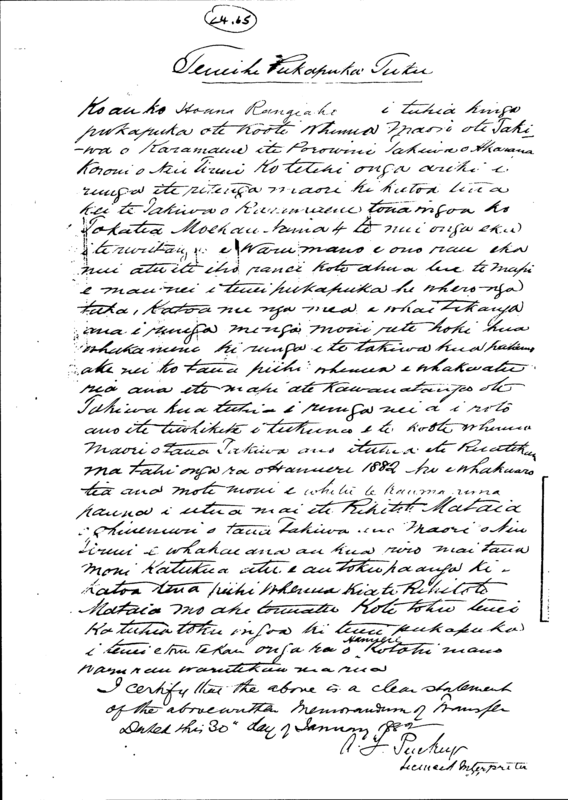 L4.65
Teneihe Pukapuka Tuku
Ko au ko Hoana Rangiahe i tuhia kinga
pukapuka ote Kooti Whenua Maori ote Taki-
-wa o Karamaene ite Porowini Takiwa o Akarana
Koroni o Niu Tireni Ko tetehi onga ariki i
runga ite ritenga maori ki katoa
kei te Takiwa o tona ingoa ko
Tokatea Moehau Nama 4 te nui onga eka
e Waru mano e ono rau eka
nui atu ite iho ranei kote ahua te mapi
e mau nei i tenei pukapuka he whero nga
taha, Katoa me nga mea e whai tikanga
ana i runga me nga moni reti hoki kua
whakamene ki runga i te takiwa kua
ake nei ko taua piihi whenua e whakaatu
ria ana ite mapi ate Kawanatanga ote
Takiwa kua tuhia i runga nei a i roto
ano ite tiwhikete i tukuna e te Kooti Whenua
Maori o taua Takiwa ano ituhia ite Ruatekau
ma tahi onga ra o Hanueri 1882 he whakaaro
tia ana mote moni e
pauna i utua mai ite Rihitoto Mataia
o Ohinemuri o taua Takiwa Maori o Niu
Tireni i whakae ana au kua riro mai taua
moni Katukua atu e au toku paanga ki
katoa tena piihi whenua kia te Rihitoto
Mataia mo ake tonuatu Kote tohu tenei
Ka tuhia toku ingoa ki tenei pukapuka
i tenei tekau onga ra o Hanueri Kotahi mano
waru rau waru tekau ma rua
I certify that the above is a clear statement
of the abovewritten Memorandum of Transfer
Dated this 30" day of January 1882
Puckey
Licensed Interpreter